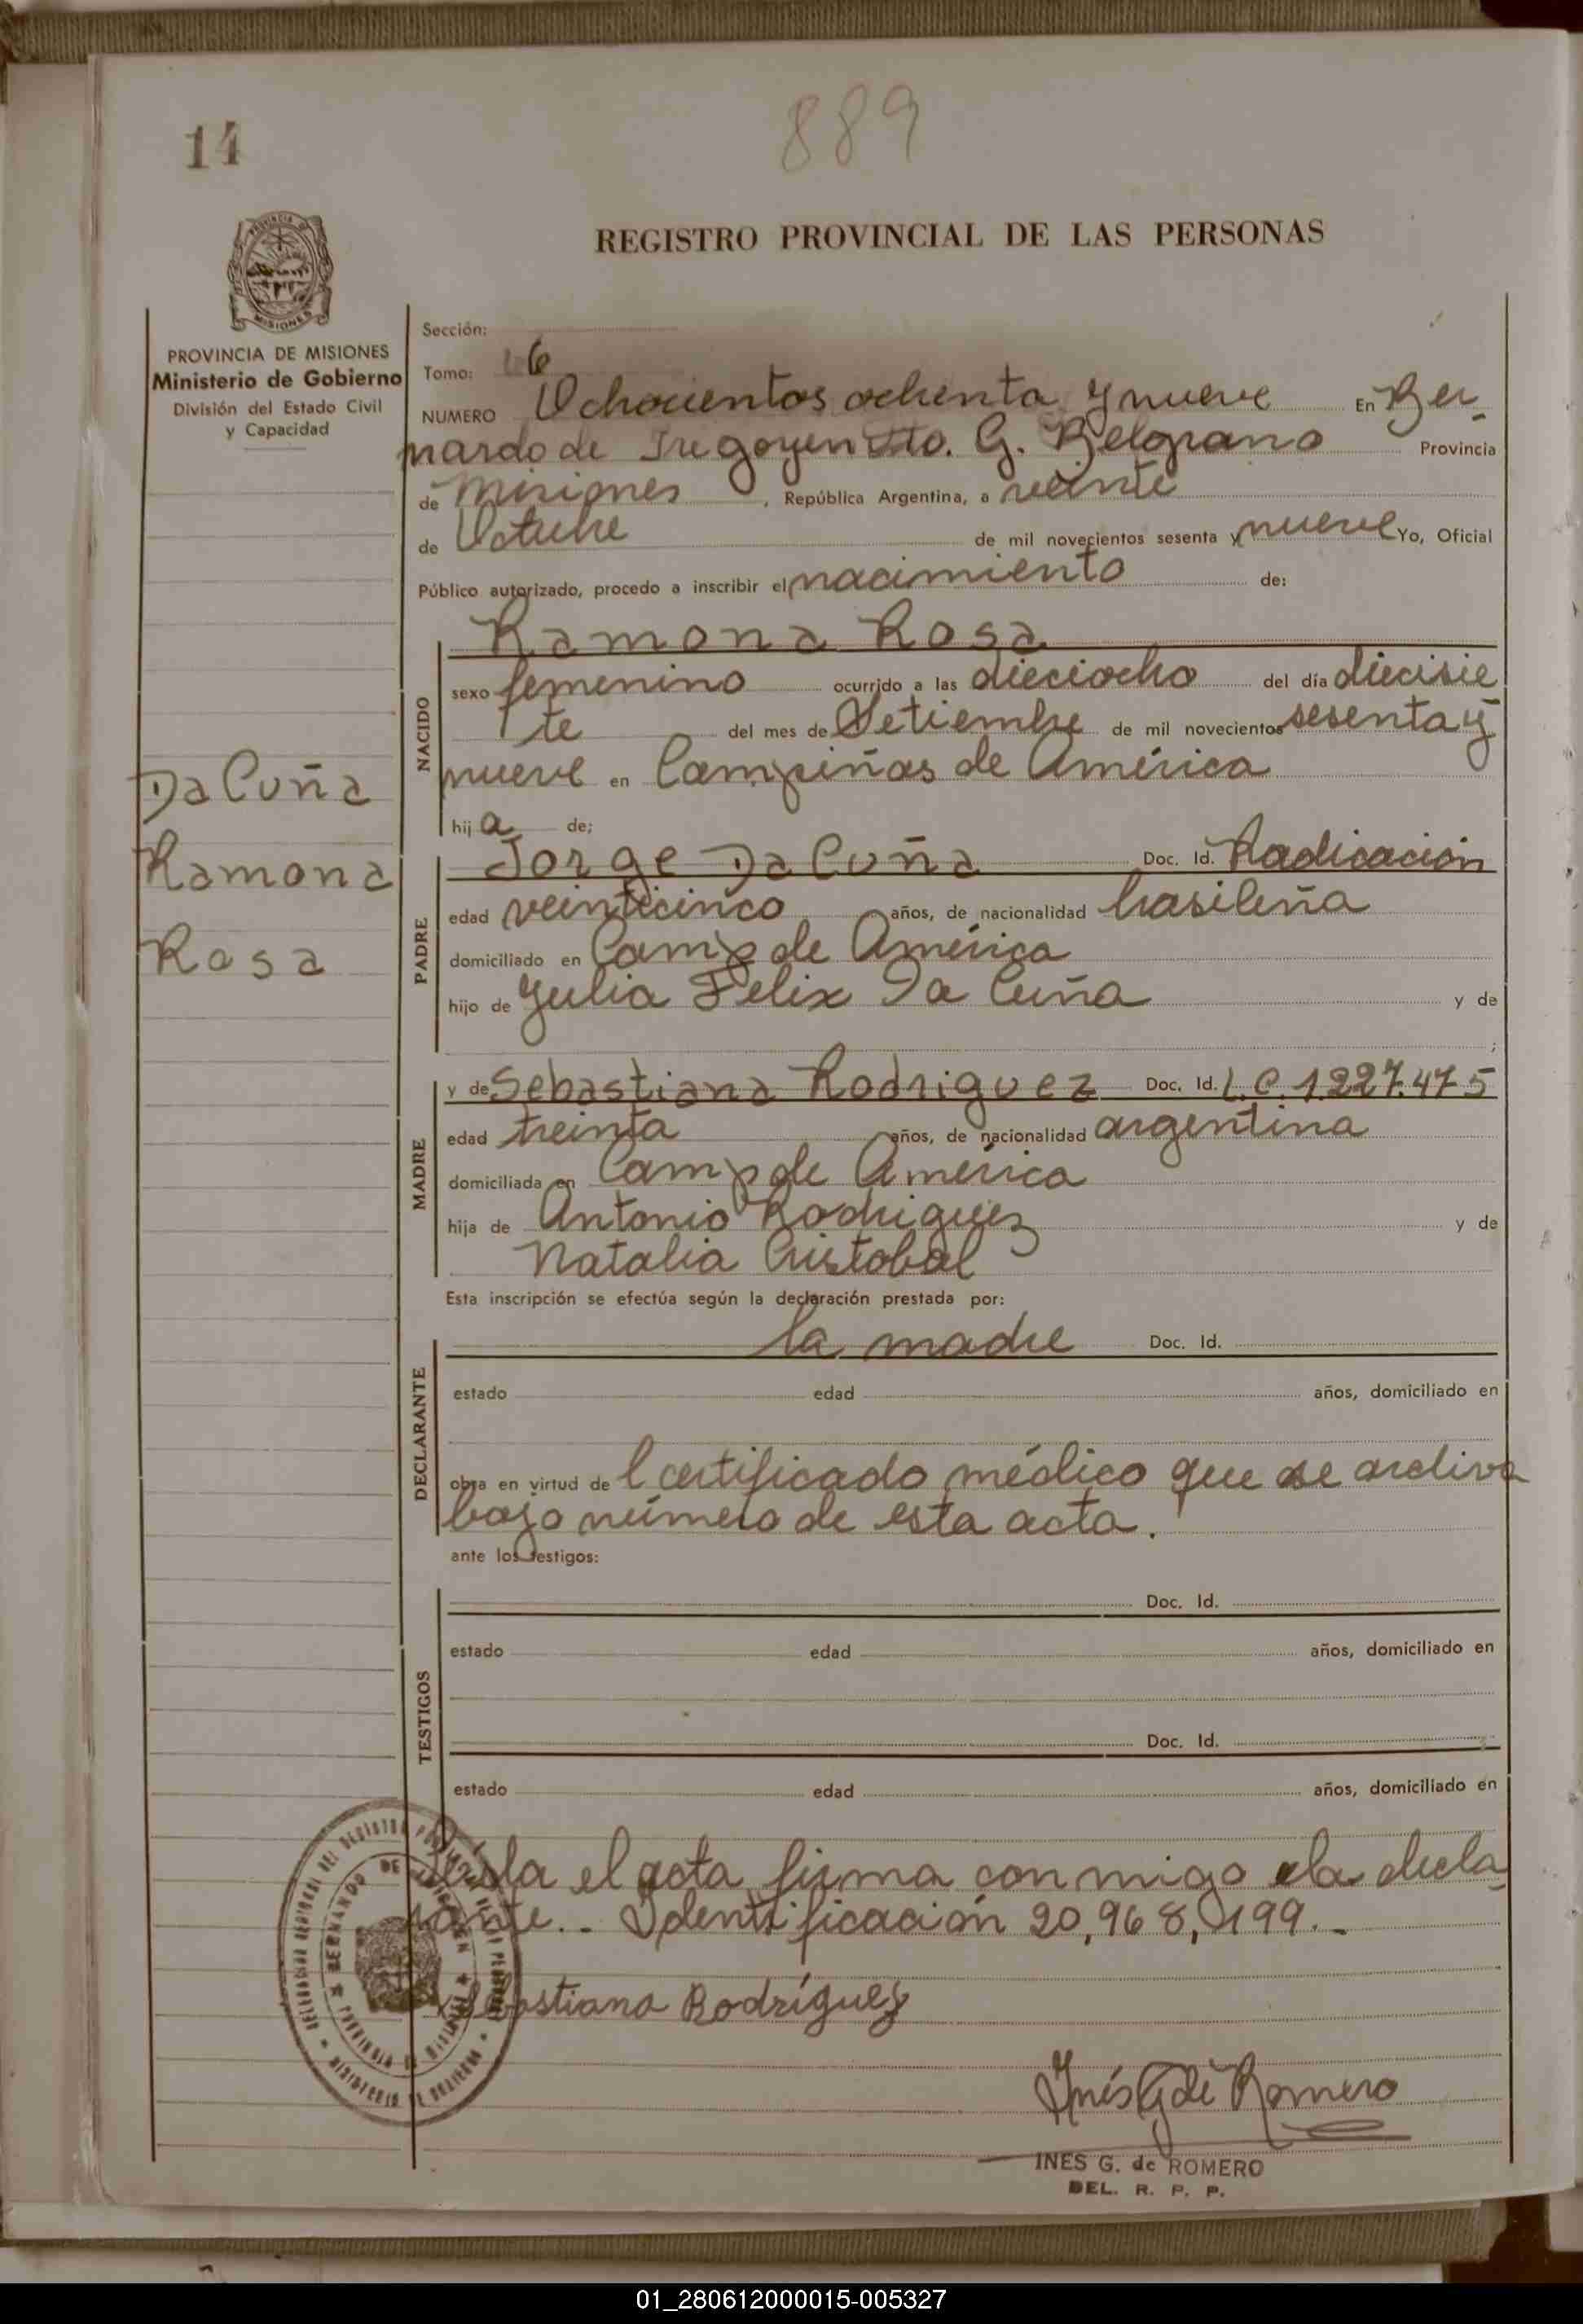 14
889
REGISTRO PROVINCIAL DE LAS PERSONAS
PROVINCIA DE MISIONES
Ministerio de Gobierno
División del Estado Civil
y Capacidad
Da Cuña
Ramona
Rosa
Sección:
Tomo: 6
NUMERO Ochocientos ochenta y nueve En Ber-
nardo de Iregoyen Dto. G. Belgrano Provincia
de Misiones, República Argentina, a veinte
de Octubre de mil novecientos sesenta y nueve Yo, Oficial
Público autorizado, procedo a inscribir el nacimiento de:
NACIDO
Ramona Rosa
sexo femenino ocurrido a las dieciocho del día diecisie
te del mes de Setiembre de mil novecientos sesenta y
nueve en Campiñas de América
hija de;
PADRE
Jorge Da Cuña Doc. Id. Radicación
edad veinticinco años, de nacionalidad brasileña
domiciliado en Camp de América
hijo de Julia Felix Da Cuña y de
;
MADRE
y de Sebastiana Rodriguez Doc. Id. L.C. 1.227.475
edad treinta años, de nacionalidad argentina
domiciliada en Camp de América
hija de Antonio Rodriguez y de
Natalia Cristobal
Esta inscripción se efectúa según la declaración prestada por:
DECLARANTE
la madre Doc. Id.
estado edad años, domiciliado en
obra en virtud de l certificado médico que se archiva
bajo número de esta acta.
ante los testigos:
TESTIGOS
Doc. Id.
estado edad años, domiciliado en
Doc. Id.
estado edad años, domiciliado en
Leída el acta firma conmigo la decla-
rante.- Identificación 20,968,199.-
Sebastiana Rodríguez
Inés G de Romero
INES G. de ROMERO
DEL. R. P. P.
01_280612000015-005327